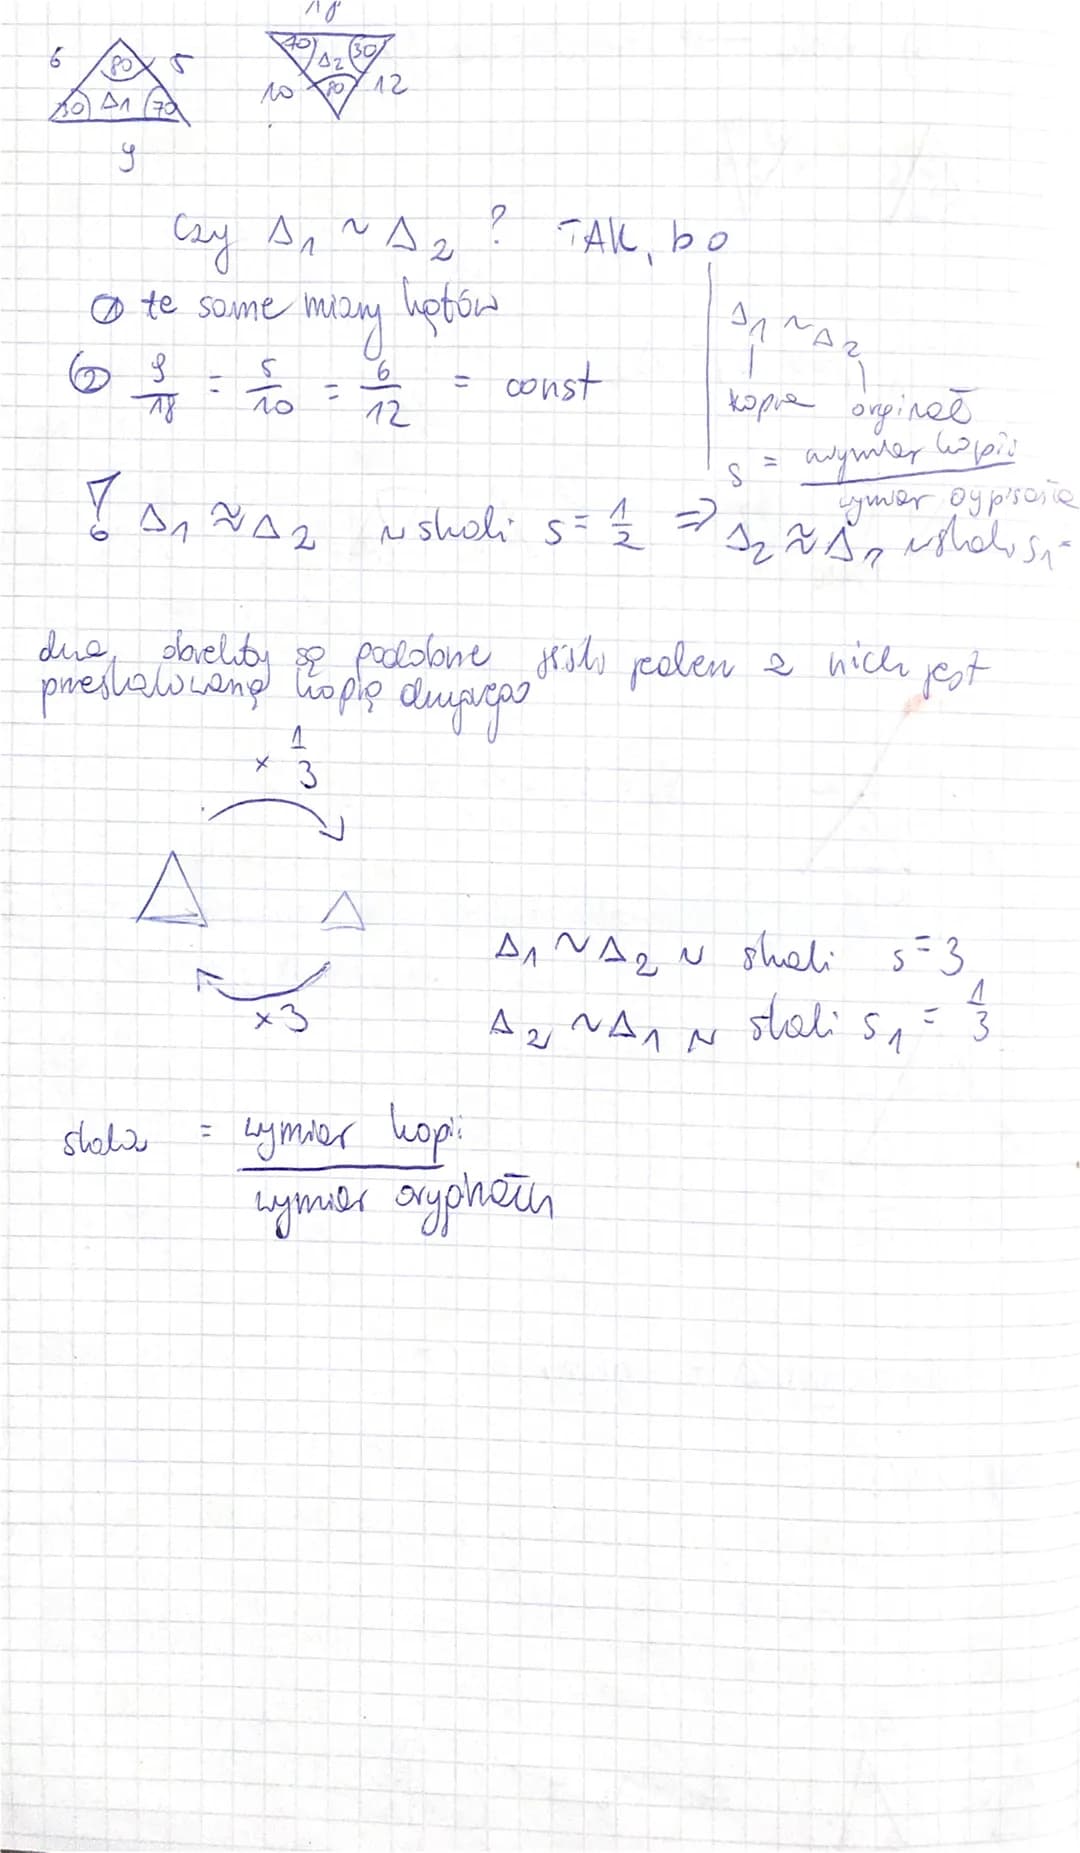 6 80 5
30 Δ1 70
9
18
70 Δ2 30
10 80 12
Czy Δ1 ~ Δ2 ? TAK, bo
① te same miary kątów
② 9/18 = 5/10 = 6/12 = const
Δ1 ~ Δ2
kopia orginał
s = wymiar kopii / wymiar
! Δ1 ≈ Δ2 w skali s = 1/2 => Δ2 ≈ Δ1 w skali s1 =
dwa obiekty są podobne jeśli jeden z nich jest
przeskalowaną kopią drugiego
x 1/3
x3
Δ1 ~ Δ2 w skali s=3
Δ2 ~ Δ1 w skali s1 = 1/3
skala = wymiar kopii / wymiar oryginału